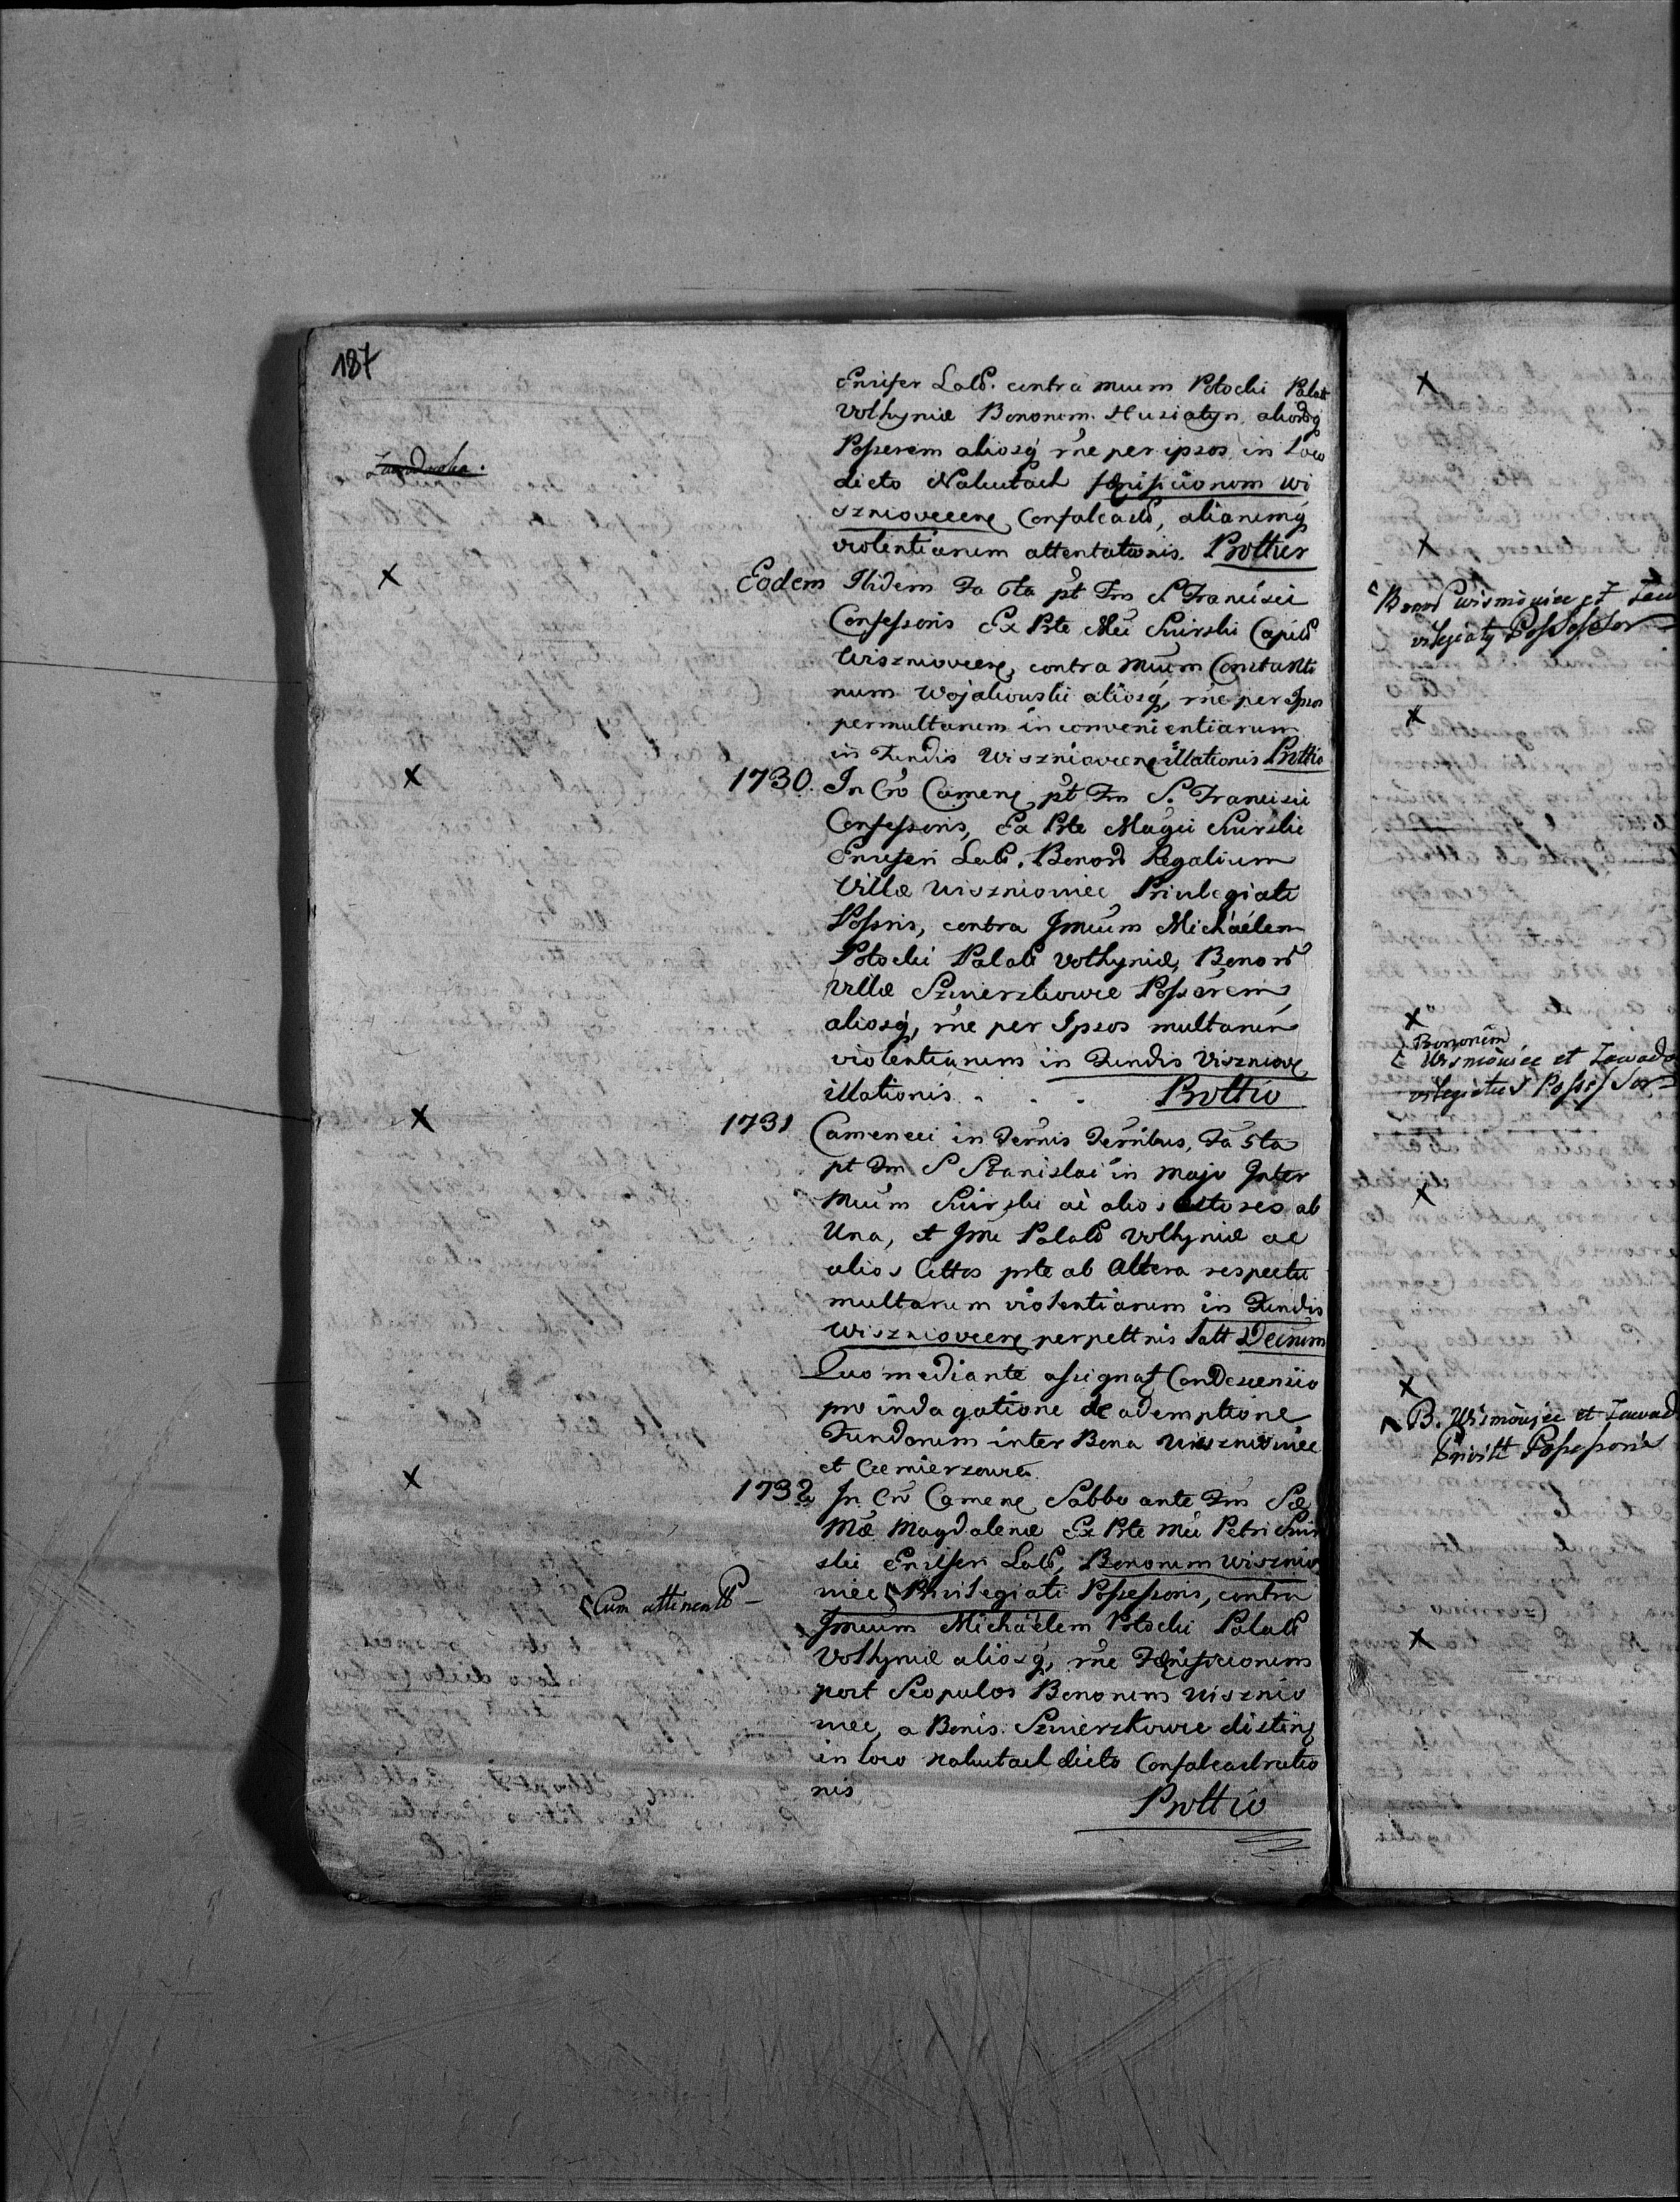 187
Ensifer Lab. contra Mcum Potocki Palatt
Volhyniæ Bonorum Husiatyn aliorq
Possorem aliosq rne per ipsos in Loco
dicto Nakutach fænisicionum Wi
sznioviecen Confalcaõ, aliarumq
violentiarum attentationis. Prottur
Zawadwka.
x
Eodem Ibidem Fa 6ta pt Fm S Francisci
Confessoris Ex Prte Mci Skirski Capit
Wisznioviecen, contra Mcum Constanti
num Wojakowski aliosq, rne per Ipsos
permultarum inconvenientiarum
in Fundis Wiszniovecen illationis Prottio
x
1730. In Cro Camene pt Fm S. Francisci
Confessoris, Ex Prte Magci Skirski
Ensiferi Lab. Bonorũ Regalium
Villæ Wiszniowiec Privilegiati
Possris, contra Jmcum Michaelem
Potocki Palatt Volhyniæ, Bonorũ
Villæ Szmierzkowce Possorem
aliosq, rne per Ipsos multarum
violentiarum in Fundis Vizniove
illationis . . . Prottio
x
1731 Cameneci in Terris Terribus, Fa 5ta
pt Fm S Stanislai in Majo Inter
Mcum Skirski ac alios Actores ab
Una, et Jmc Palatt Volhyniæ ac
alios Cittos prte ab Altera respectu
multarum violentiarum in Fundis
Wiszniovecen perpettnis Latt Decrum
Quo mediante assignat Condescensio
pro indagatione de ademptione
Fundorum inter Bona Wiszniowiec
et Czemierzowce
x
1732 In Cro Camene Sabbo ante Fm Sæ
Mæ Magdalenæ Ex Prte Mci Petri Skir
ski Ensiferi Lab, Bonorum Wisznio
wiec Privilegiati Possessoris, contra
Cum attinenti –
Jmcum Michaelem Potocki Palatt
Volhyniæ aliosq, rne Fænisicionum
post Scopulos Bonorum Wisznio
wiec, a Bonis Szmierzkowce disting
in loco Nakutach dicto Confalcadratio
nis
Prottio
x
x
Bonor Wismiowiec et Zaw
vilegiatq Possessor
x
x
Bonorum
Wismiowiec et Zawado
vilegiatus Possessor
x
x
B. Wismiowiec et Zawad
Privitt Possessoris
x